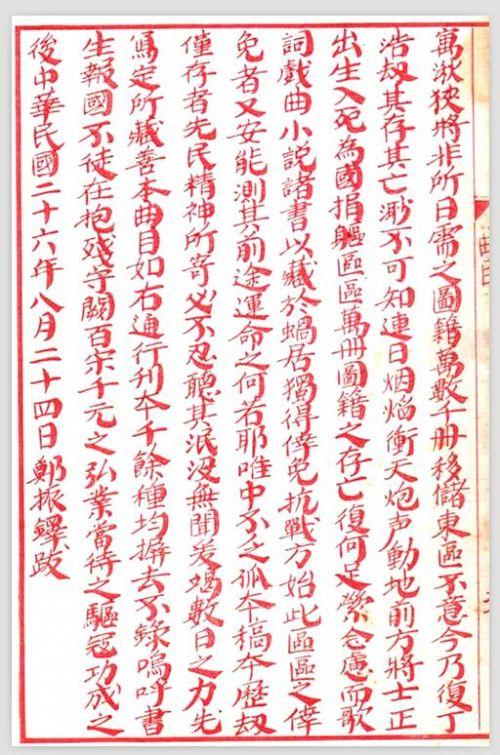 寓湫狹將非所日需之圖籍萬數千冊移儲東區不意今乃復丁
浩劫其存其亡渺不可知連日烟焰衝天炮声動地前方將士正
出生入死為國捐軀區區萬冊圖籍之存亡復何足縈念慮而歌
詞戲曲小說諸書以藏於蝸居獨得倖免抗戰方始此區區之倖
免者又安能測其前途運命之何若耶唯中不乏孤本稿本歷劫
僅存者先民精神所寄必不忍聽其泯沒無聞爰竭數日之力先
寫定所藏善本曲目如右通行刊本千餘種均摒去不錄嗚呼書
生報國不徒在抱殘守闕百宋千元之弘業當待之驅寇功成之
後中華民國二十六年八月二十四日鄭振鐸跋